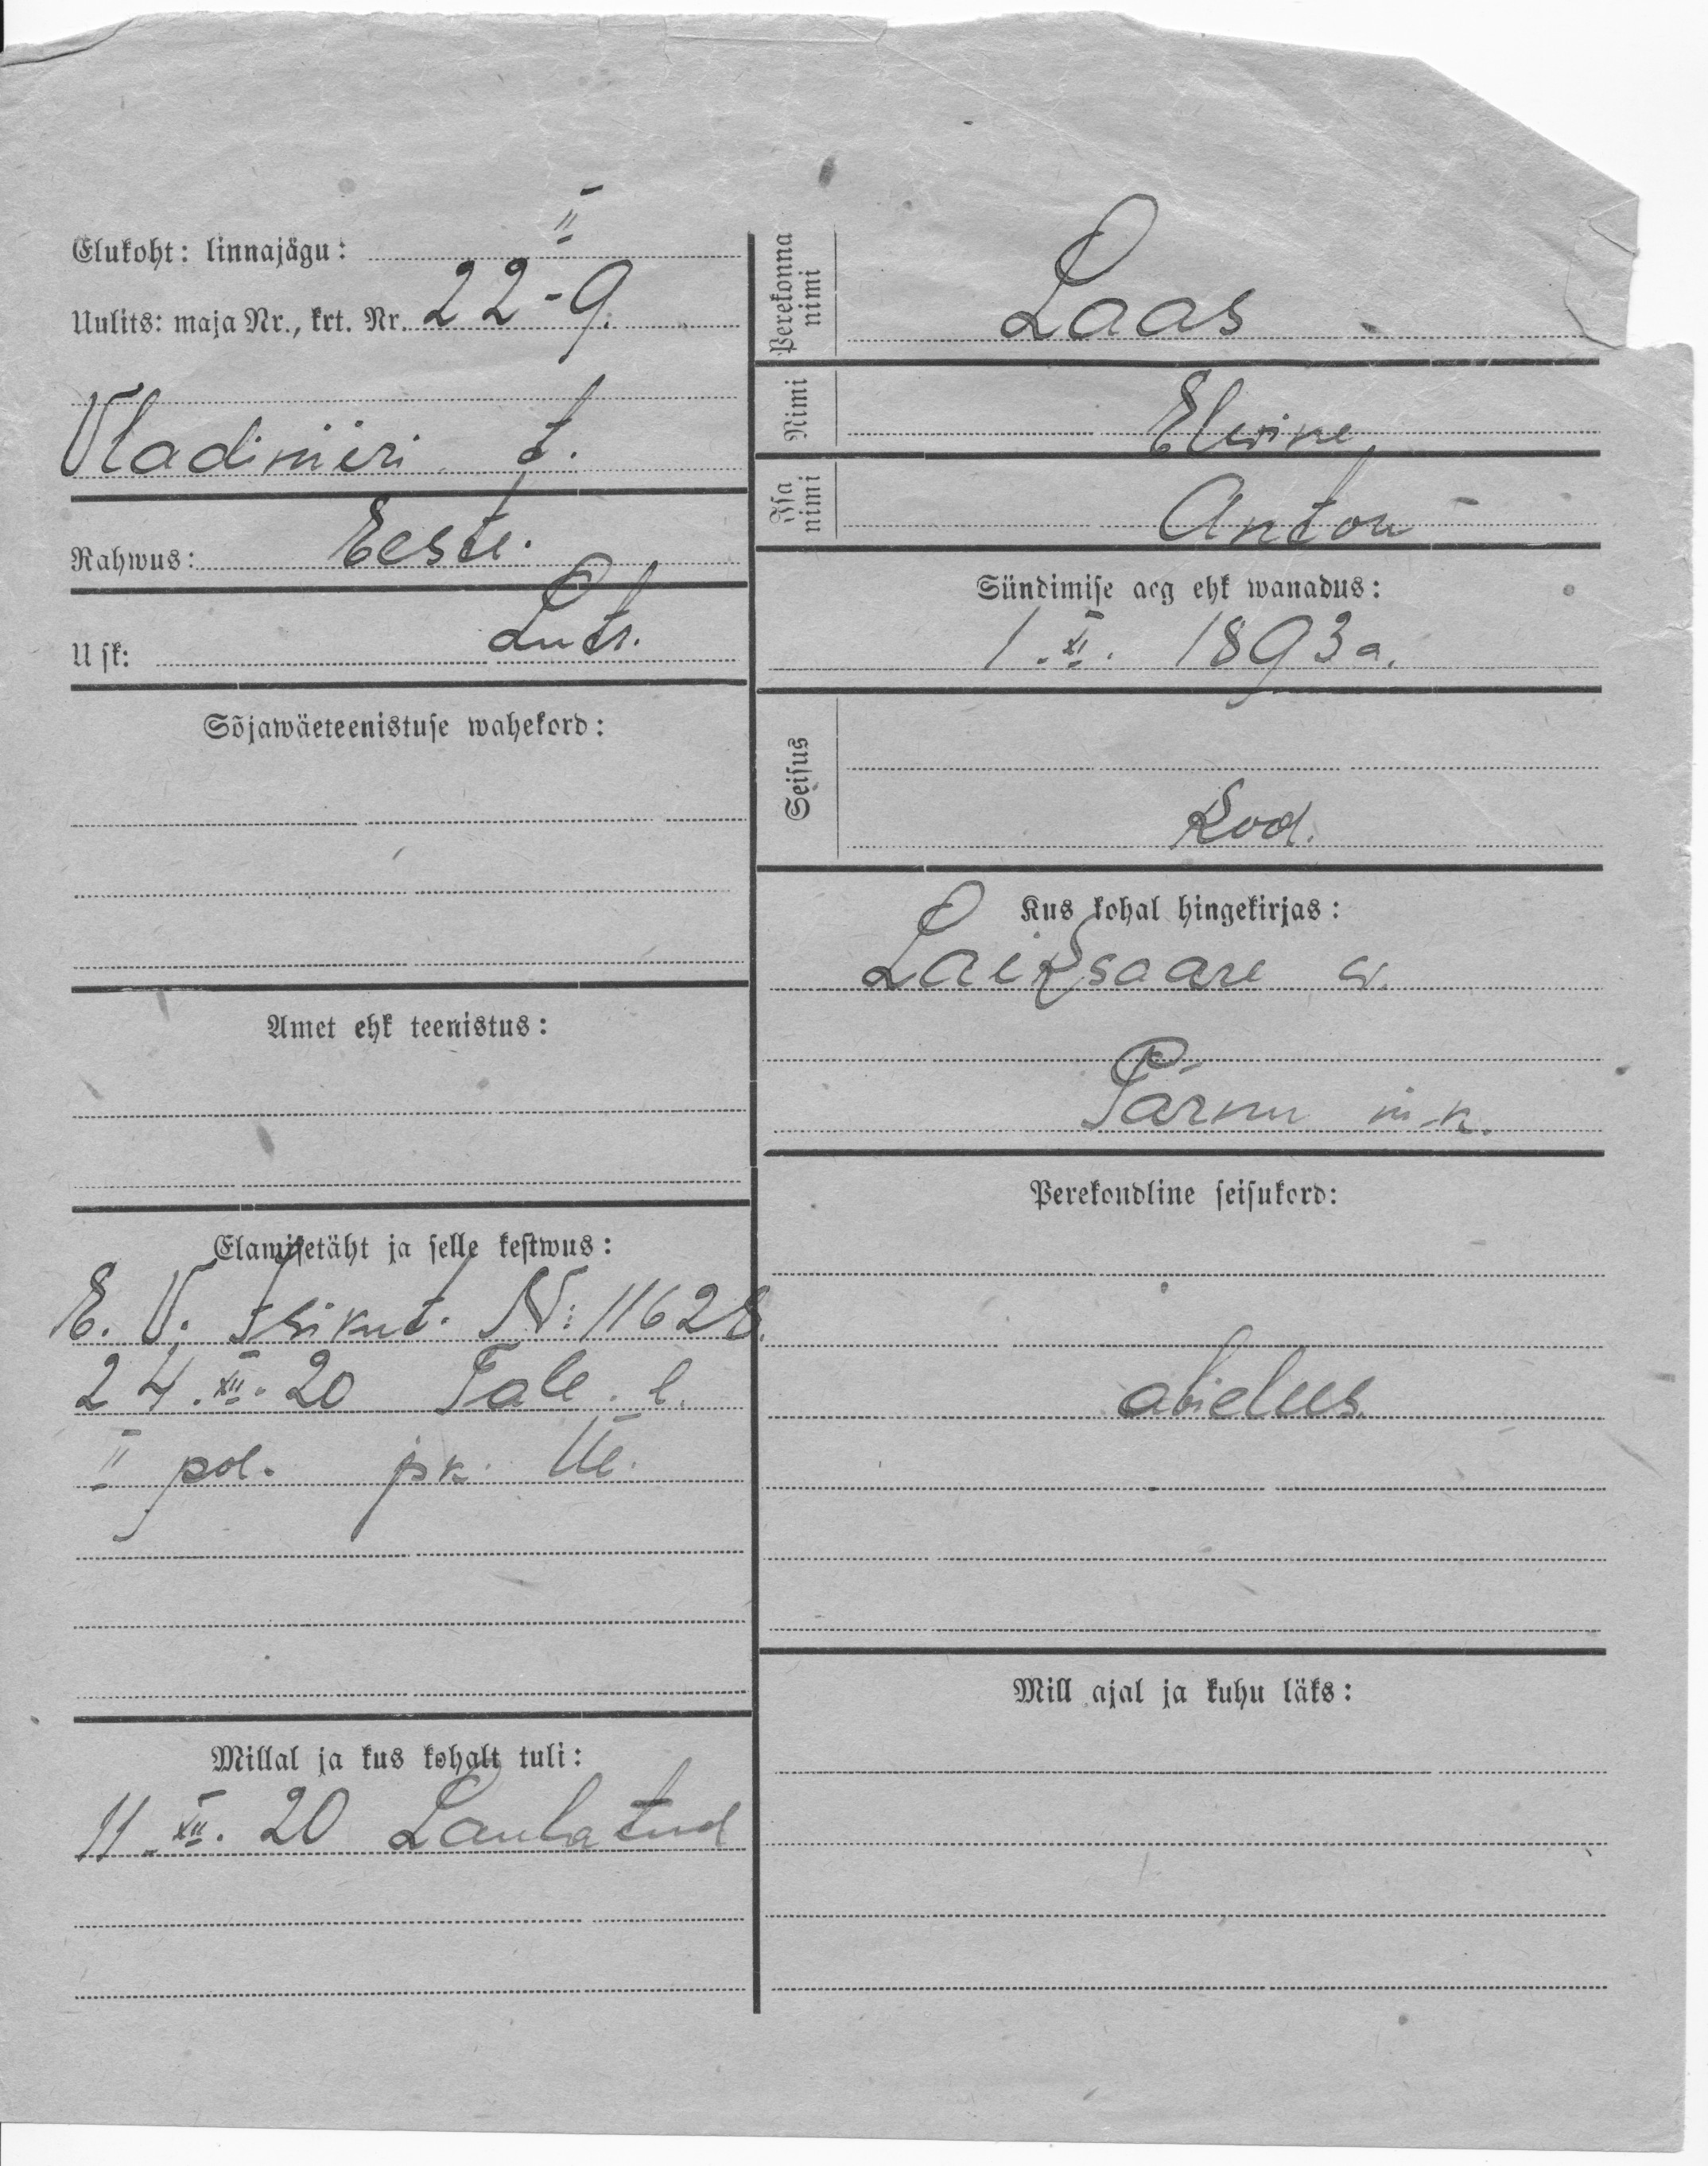 Elukoht: linnajägu: II
Uulits: maja Nr., krt. Nr. 22-9.
Vladimiiri t.
Rahwus: Eesti.
Usk: Lut.
Sõjawäeteenistuse wahekord:
Amet ehk teenistus:
Elamisetäht ja selle kestwus:
E. V. Isikut. N: 11628.
24.XII.20 Tall. l.
II pol. jsk.
Millal ja kus kohalt tuli:
11.XII.20 Laulatud
Perekonna nimi Laas
Nimi Elwine
Isa nimi Anton
Sündimise aeg ehk wanadus:
1.XI. 1893a.
Seisus
Kod.
Kus kohal hingekirjas:
Laiksaare w.
Pärnu m-k.
Perekondline seisukord:
abielus.
Mill ajal ja kuhu läks: